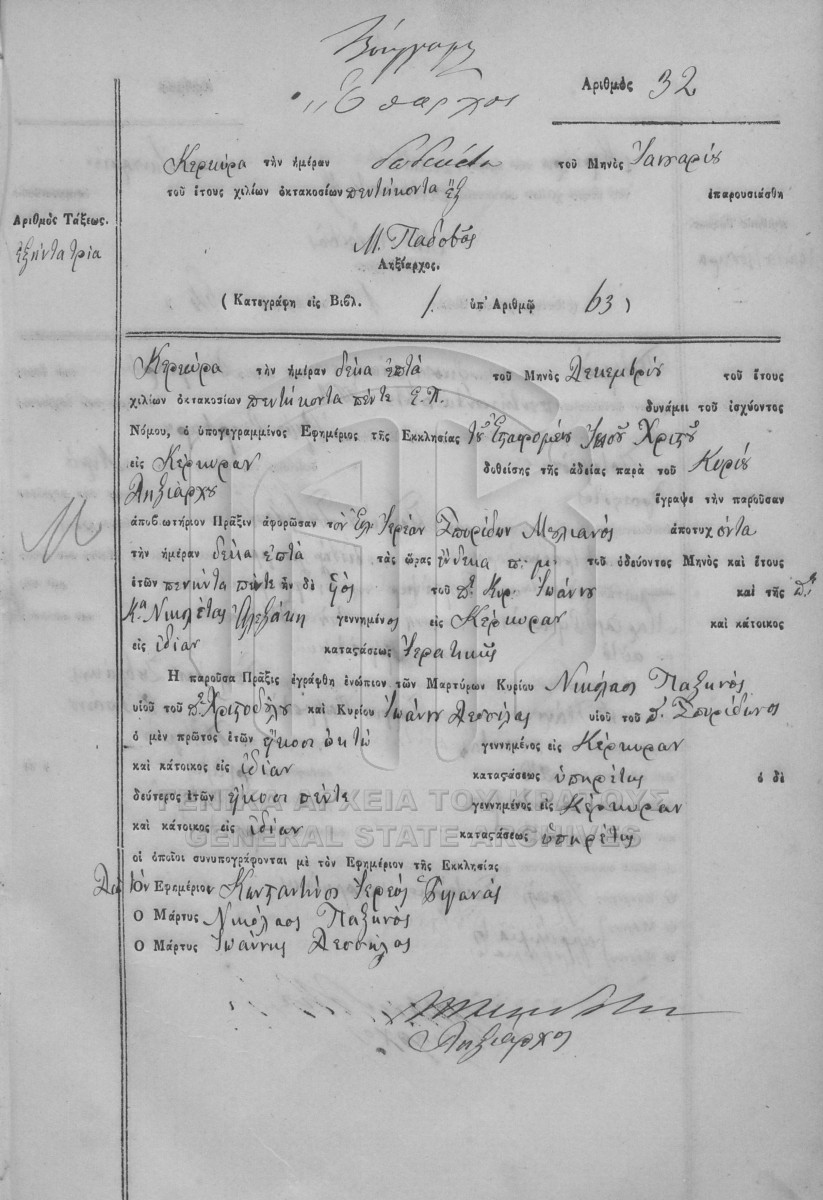 Ἔπαρχος
Ἀριθμὸς 32
Κερκύρα τὴν ἡμέραν δωδεκάτη τοῦ Μηνὸς Ἰανναρίου
τοῦ ἔτους χιλίων ὀκτακοσίων πεντήκοντα ἓξ ἐπαρουσιάσθη
Ἀριθμὸς Τάξεως.
ἑξῆντα τρία
Μ. Παδοβᾶς
Ληξίαρχος.
(Κατεγράφη εἰς Βιβλ. 1. ὑπ' Ἀριθμῷ 63)
Κερκύρα τὴν ἡμέραν δέκα ἑπτὰ τοῦ Μηνὸς Δεκεμβρίου τοῦ ἔτους
χιλίων ὀκτακοσίων πεντήκοντα πέντε Ε.Π. δυνάμει τοῦ ἰσχύοντος
Νόμου, ὁ ὑπογεγραμμένος Ἐφημέριος τῆς Ἐκκλησίας τοῦ Ἐσταφομένου Ἰησοῦ Χριστοῦ
εἰς Κέρκυραν δοθείσης τῆς ἀδείας παρὰ τοῦ Κυρίου
Ληξιάρχου ἔγραψε τὴν παροῦσαν
ἀποβιωτήριον Πρᾶξιν ἀφορῶσαν τὸν Ἱερέαν Σπυρίδων Μελιανὸς ἀποτυχόντα
τὴν ἡμέραν δέκα ἑπτὰ τὰς ὥρας ἕνδεκα π. μ. τοῦ ὁδεύοντος Μηνὸς καὶ ἔτους
ἐτῶν πενῆντα πέντε ἦν δὲ ὑιὸς τοῦ π. Κυρ. Ἰωάννου καὶ τῆς π.
Κας Νικολέτας Ἀλεξάκη γεννημένος εἰς Κέρκυραν καὶ κάτοικος
εἰς ἰδίαν καταστάσεως Ἱερατικῆς
Ἡ παροῦσα Πρᾶξις ἐγράφθη ἐνώπιον τῶν Μαρτύρων Κυρίου Νικόλαος Παξινὸς
υἱοῦ τοῦ π. Χριστοδούλου καὶ Κυρίου Ἰωάννου Δεσσίλας υἱοῦ τοῦ π. Σπυρίδωνος
ὁ μὲν πρῶτος ἐτῶν ἤκοσι ὀκτὼ γεννημένος εἰς Κέρκυραν
καὶ κάτοικος εἰς ἰδίαν καταστάσεως ὑπηρέτης ὁ δὲ
δεύτερος ἐτῶν ἤκοσι πέντε γεννημένος εἰς Κέρκυραν
καὶ κάτοικος εἰς ἰδίαν καταστάσεως ὑπηρέτης
οἱ ὁποῖοι συνυπογράφονται μὲ τὸν Ἐφημέριον τῆς Ἐκκλησίας
Ὁν Ἐφημέριον Κωνσταντῖνος Ἱερεὺς
Ο Μάρτυς Νικόλαος Παξινὸς
Ο Μάρτυς Ἰωάννης Δεσσύλας
Ληξίαρχος
ΓΕΝΙΚΑ ΑΡΧΕΙΑ ΤΟΥ ΚΡΑΤΟΥΣ
GENERAL STATE ARCHIVES